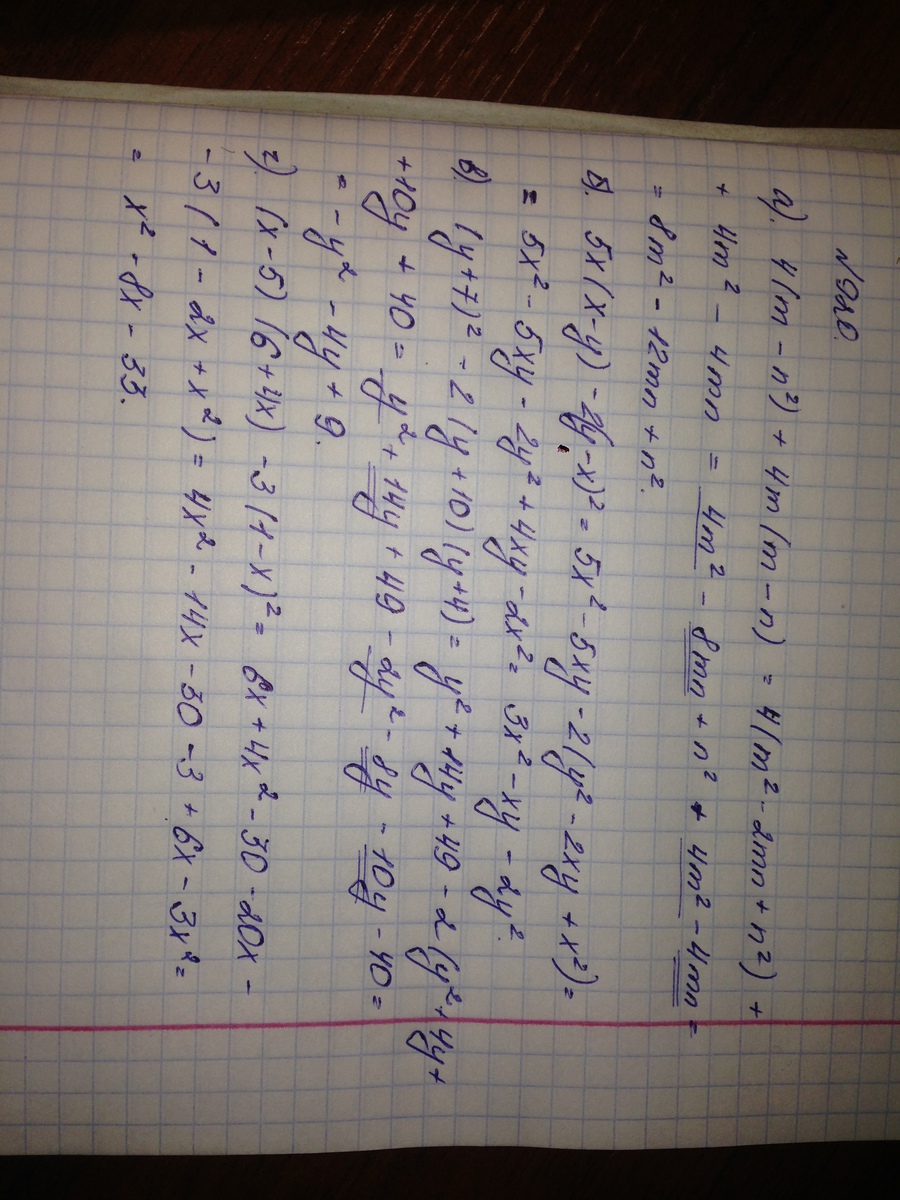 N920.
а). 4(m - n²) + 4m(m - n) = 4(m² - 2mn + n²) +
+ 4m² - 4mn = 4m² - 8mn + n² + 4m² - 4mn =
= 8m² - 12mn + n².
б). 5x(x-y) - 2(y-x)² = 5x² - 5xy - 2(y² - 2xy + x²) =
= 5x² - 5xy - 2y² + 4xy - 2x² = 3x² - xy - 2y².
в). (y+7)² - 2(y+10)(y+4) = y² + 14y + 49 - 2(y² + 4y +
+10y + 40 = y² + 14y + 49 - 2y² - 8y - 10y - 40 =
= -y² - 4y + 9.
г). (x-5)(6+4x) - 3(1-x)² = 6x + 4x² - 30 - 20x -
-3(1 - 2x + x²) = 4x² - 14x - 30 - 3 + 6x - 3x² =
= x² - 8x - 33.